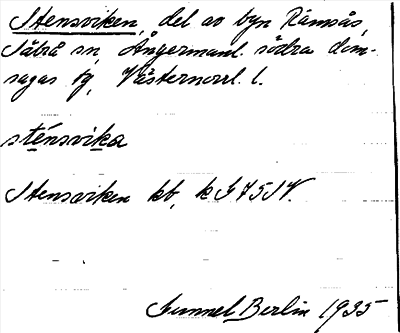 Stensviken, del av byn Rämsås,
Sätrå sn, Ångermanl. södra dom-
sagas tg, Västernorrl. l.
sténsvika
Stensviken kb, k
Gunnel Berlin 1935